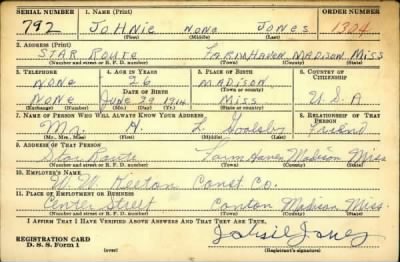 SERIAL NUMBER 1. NAME (Print) ORDER NUMBER
792 JOHNIE NONE JONES 1304
(First) (Middle) (Last)
2. ADDRESS (Print)
STAR ROUTE FARMHAVEN MADISON MISS
(Number and street or R. F. D. number) (Town) (County) (State)
3. TELEPHONE 4. AGE IN YEARS 5. PLACE OF BIRTH 6. COUNTRY OF CITIZENSHIP
NONE 26 MADISON
DATE OF BIRTH (Town or county)
NONE JUNE 29 1914 MISS U.S.A
(Exchange) (Number) (Mo.) (Day) (Yr.) (State or country)
7. NAME OF PERSON WHO WILL ALWAYS KNOW YOUR ADDRESS 8. RELATIONSHIP OF THAT PERSON
Mr. A. L Goolsby Friend
(Mr., Mrs., Miss) (First) (Middle) (Last)
9. ADDRESS OF THAT PERSON
Star Route Farm Haven Madison Miss
(Number and street or R. F. D. number) (Town) (County) (State)
10. EMPLOYER'S NAME
Const. Co.
11. PLACE OF EMPLOYMENT OR BUSINESS
Center Street Canton Madison Miss.
(Number and street or R. F. D. number) (Town) (County) (State)
I AFFIRM THAT I HAVE VERIFIED ABOVE ANSWERS AND THAT THEY ARE TRUE.
REGISTRATION CARD
D. S. S. Form 1 (over) (Registrant's signature)
Johnie Jones